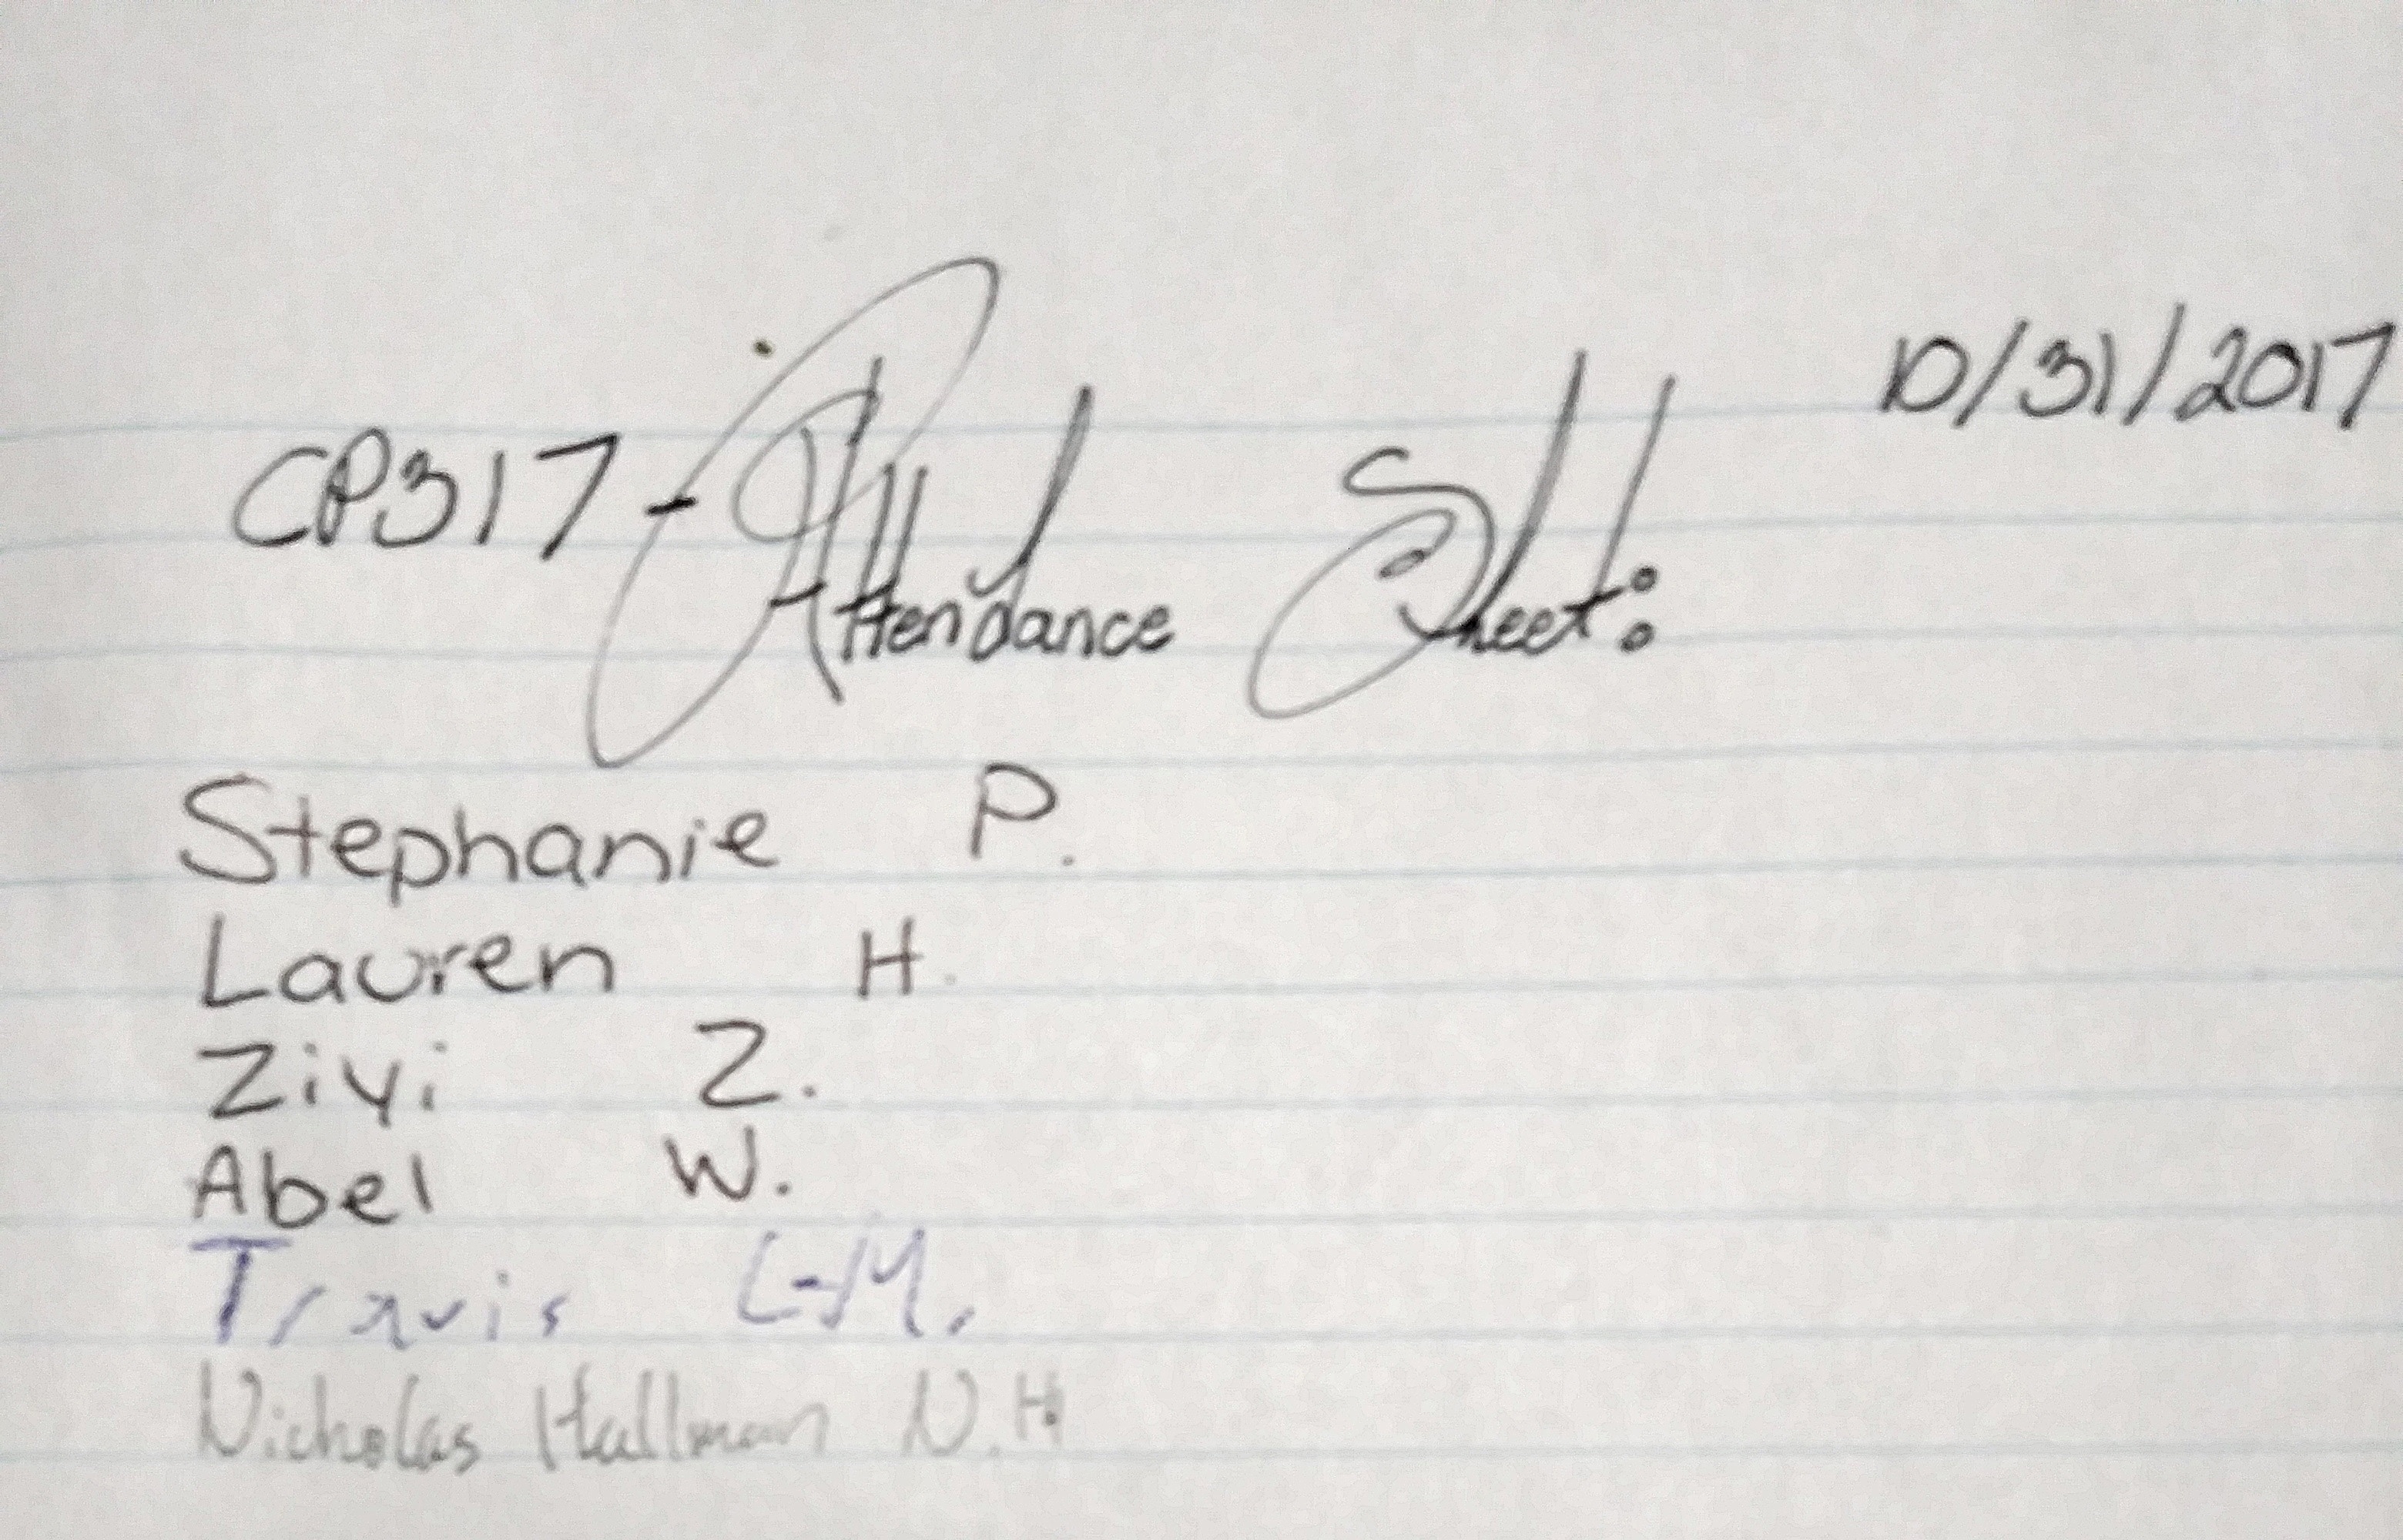 10/31/2017
CP317 - Attendance Sheet:
Stephanie P.
Lauren H.
Ziyi Z.
Abel W.
Travis L-M.
Nicholas Hallman N.H